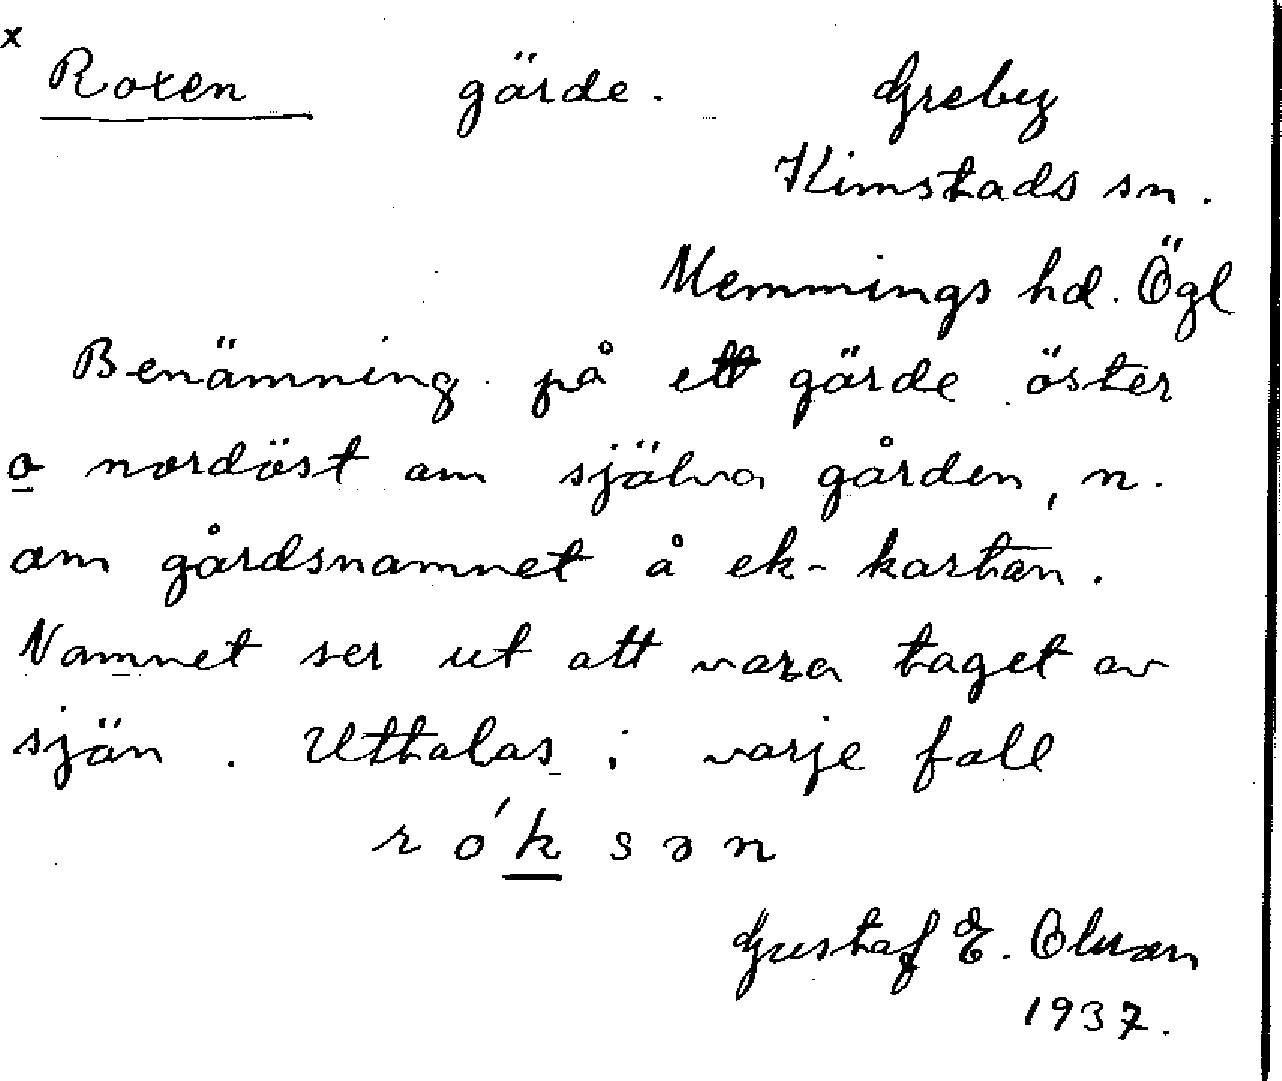 x
Roxen gärde. Greby
Kimstads sn.
Memmings hd. Ögl
Benämning på ett gärde öster
o nordöst om själva gården, n.
om gårdsnamnet å ek-kartan.
Namnet ser ut att vara taget av
sjön. Uttalas i varje fall
rók sən
Gustaf E. Olsson
1937.